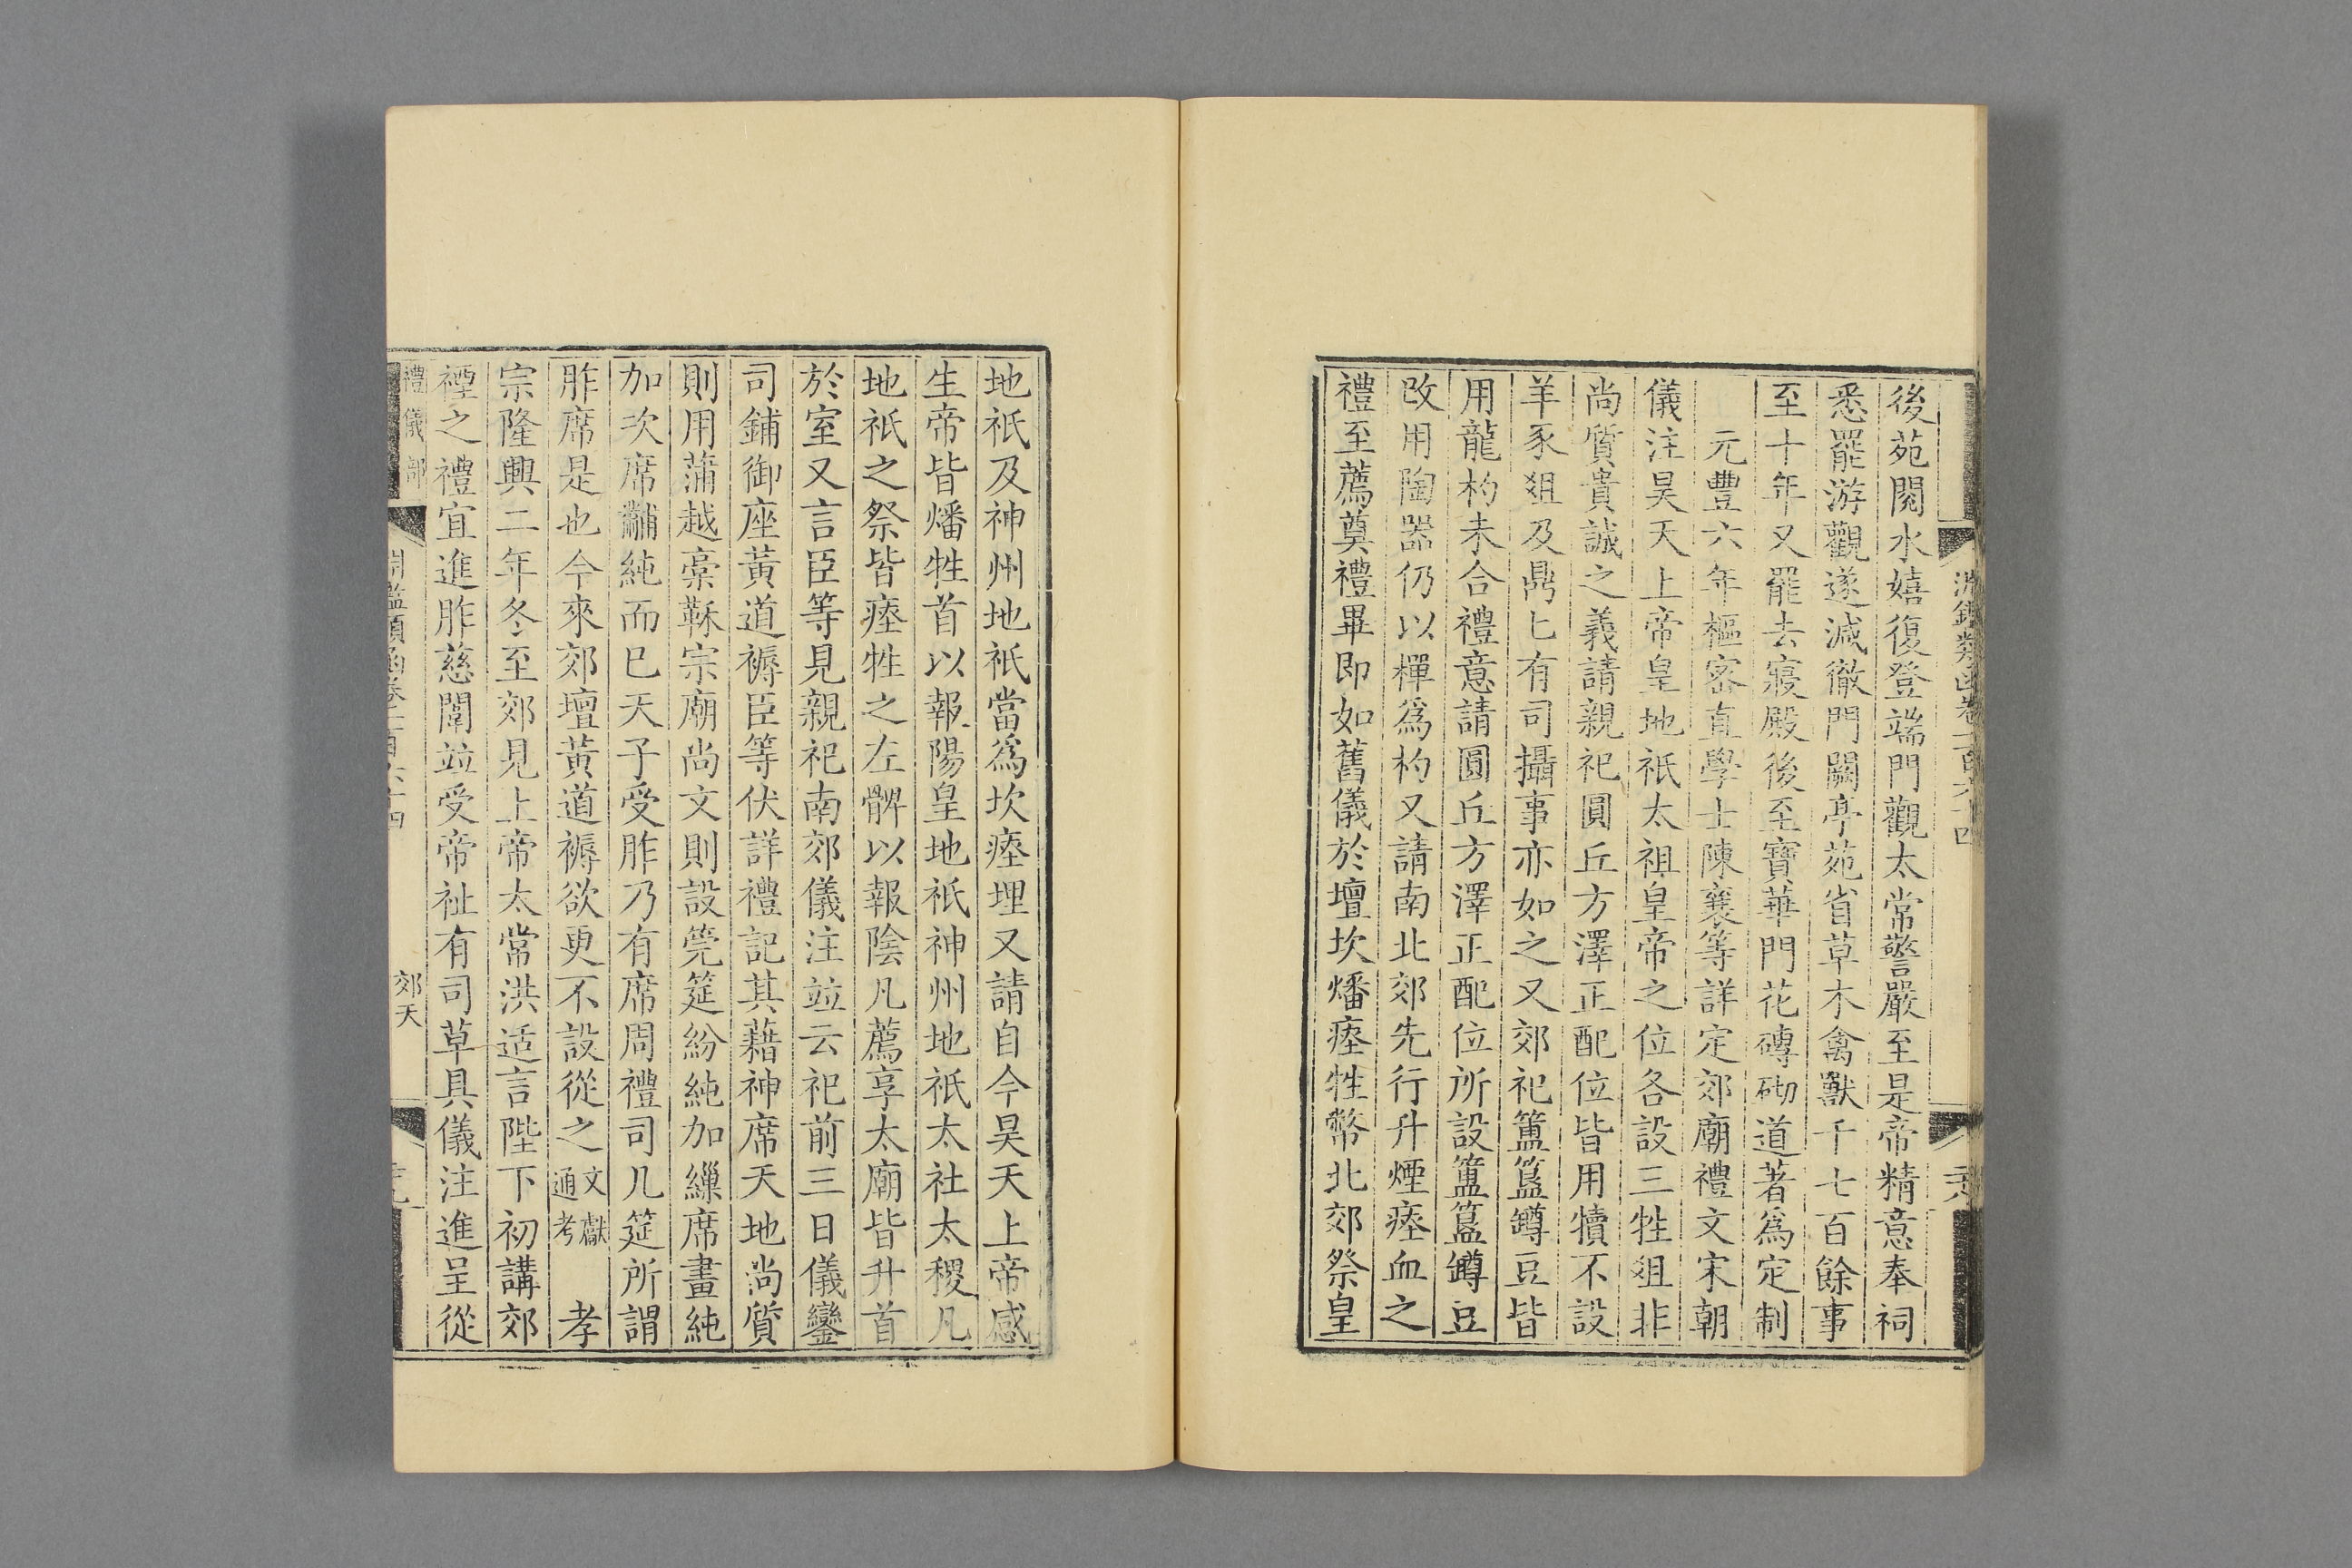 後苑閱水嬉復登端門觀太常警嚴至是帝精意奉祠
悉罷游觀遂減徹門闕亭苑省草木禽獸千七百餘事
至十年又罷去寢殿後至寶華門花磚砌道著爲定制
元豐六年樞密直學士陳襄等詳定郊廟禮文宋朝
儀注昊天上帝皇地祇太祖皇帝之位各設三牲俎非
尚質貴誠之義請親祀圓丘方澤正配位皆用犢不設
羊豕俎及鼎匕有司攝事亦如之又郊祀簠簋罇豆皆
用龍杓未合禮意請圓丘方澤正配位所設簠簋罇豆
改用陶器仍以樿爲杓又請南北郊先行升煙瘞血之
禮至薦奠禮畢即如舊儀於壇坎燔瘞牲幣北郊祭皇
地祇及神州地祇當爲坎瘞埋又請自今昊天上帝感
生帝皆燔牲首以報陽皇地祇神州地祇太社太稷凡
地祇之祭皆瘞牲之左髀以報陰凡薦享太廟皆升首
於室又言臣等見親祀南郊儀注竝云祀前三日儀鑾
司鋪御座黃道褥臣等伏詳禮記其藉神席天地尚質
則用蒲越槀鞂宗廟尚文則設筦筵紛純加繅席畫純
加次席黼純而已天子受胙乃有席周禮司几筵所謂
胙席是也今來郊壇黃道褥欲更不設從之文獻通考 孝
宗隆興二年冬至郊見上帝太常洪适言陛下初講郊
禋之禮宜進胙慈闈竝受帝祉有司草具儀注進呈從
禮儀部
郊天